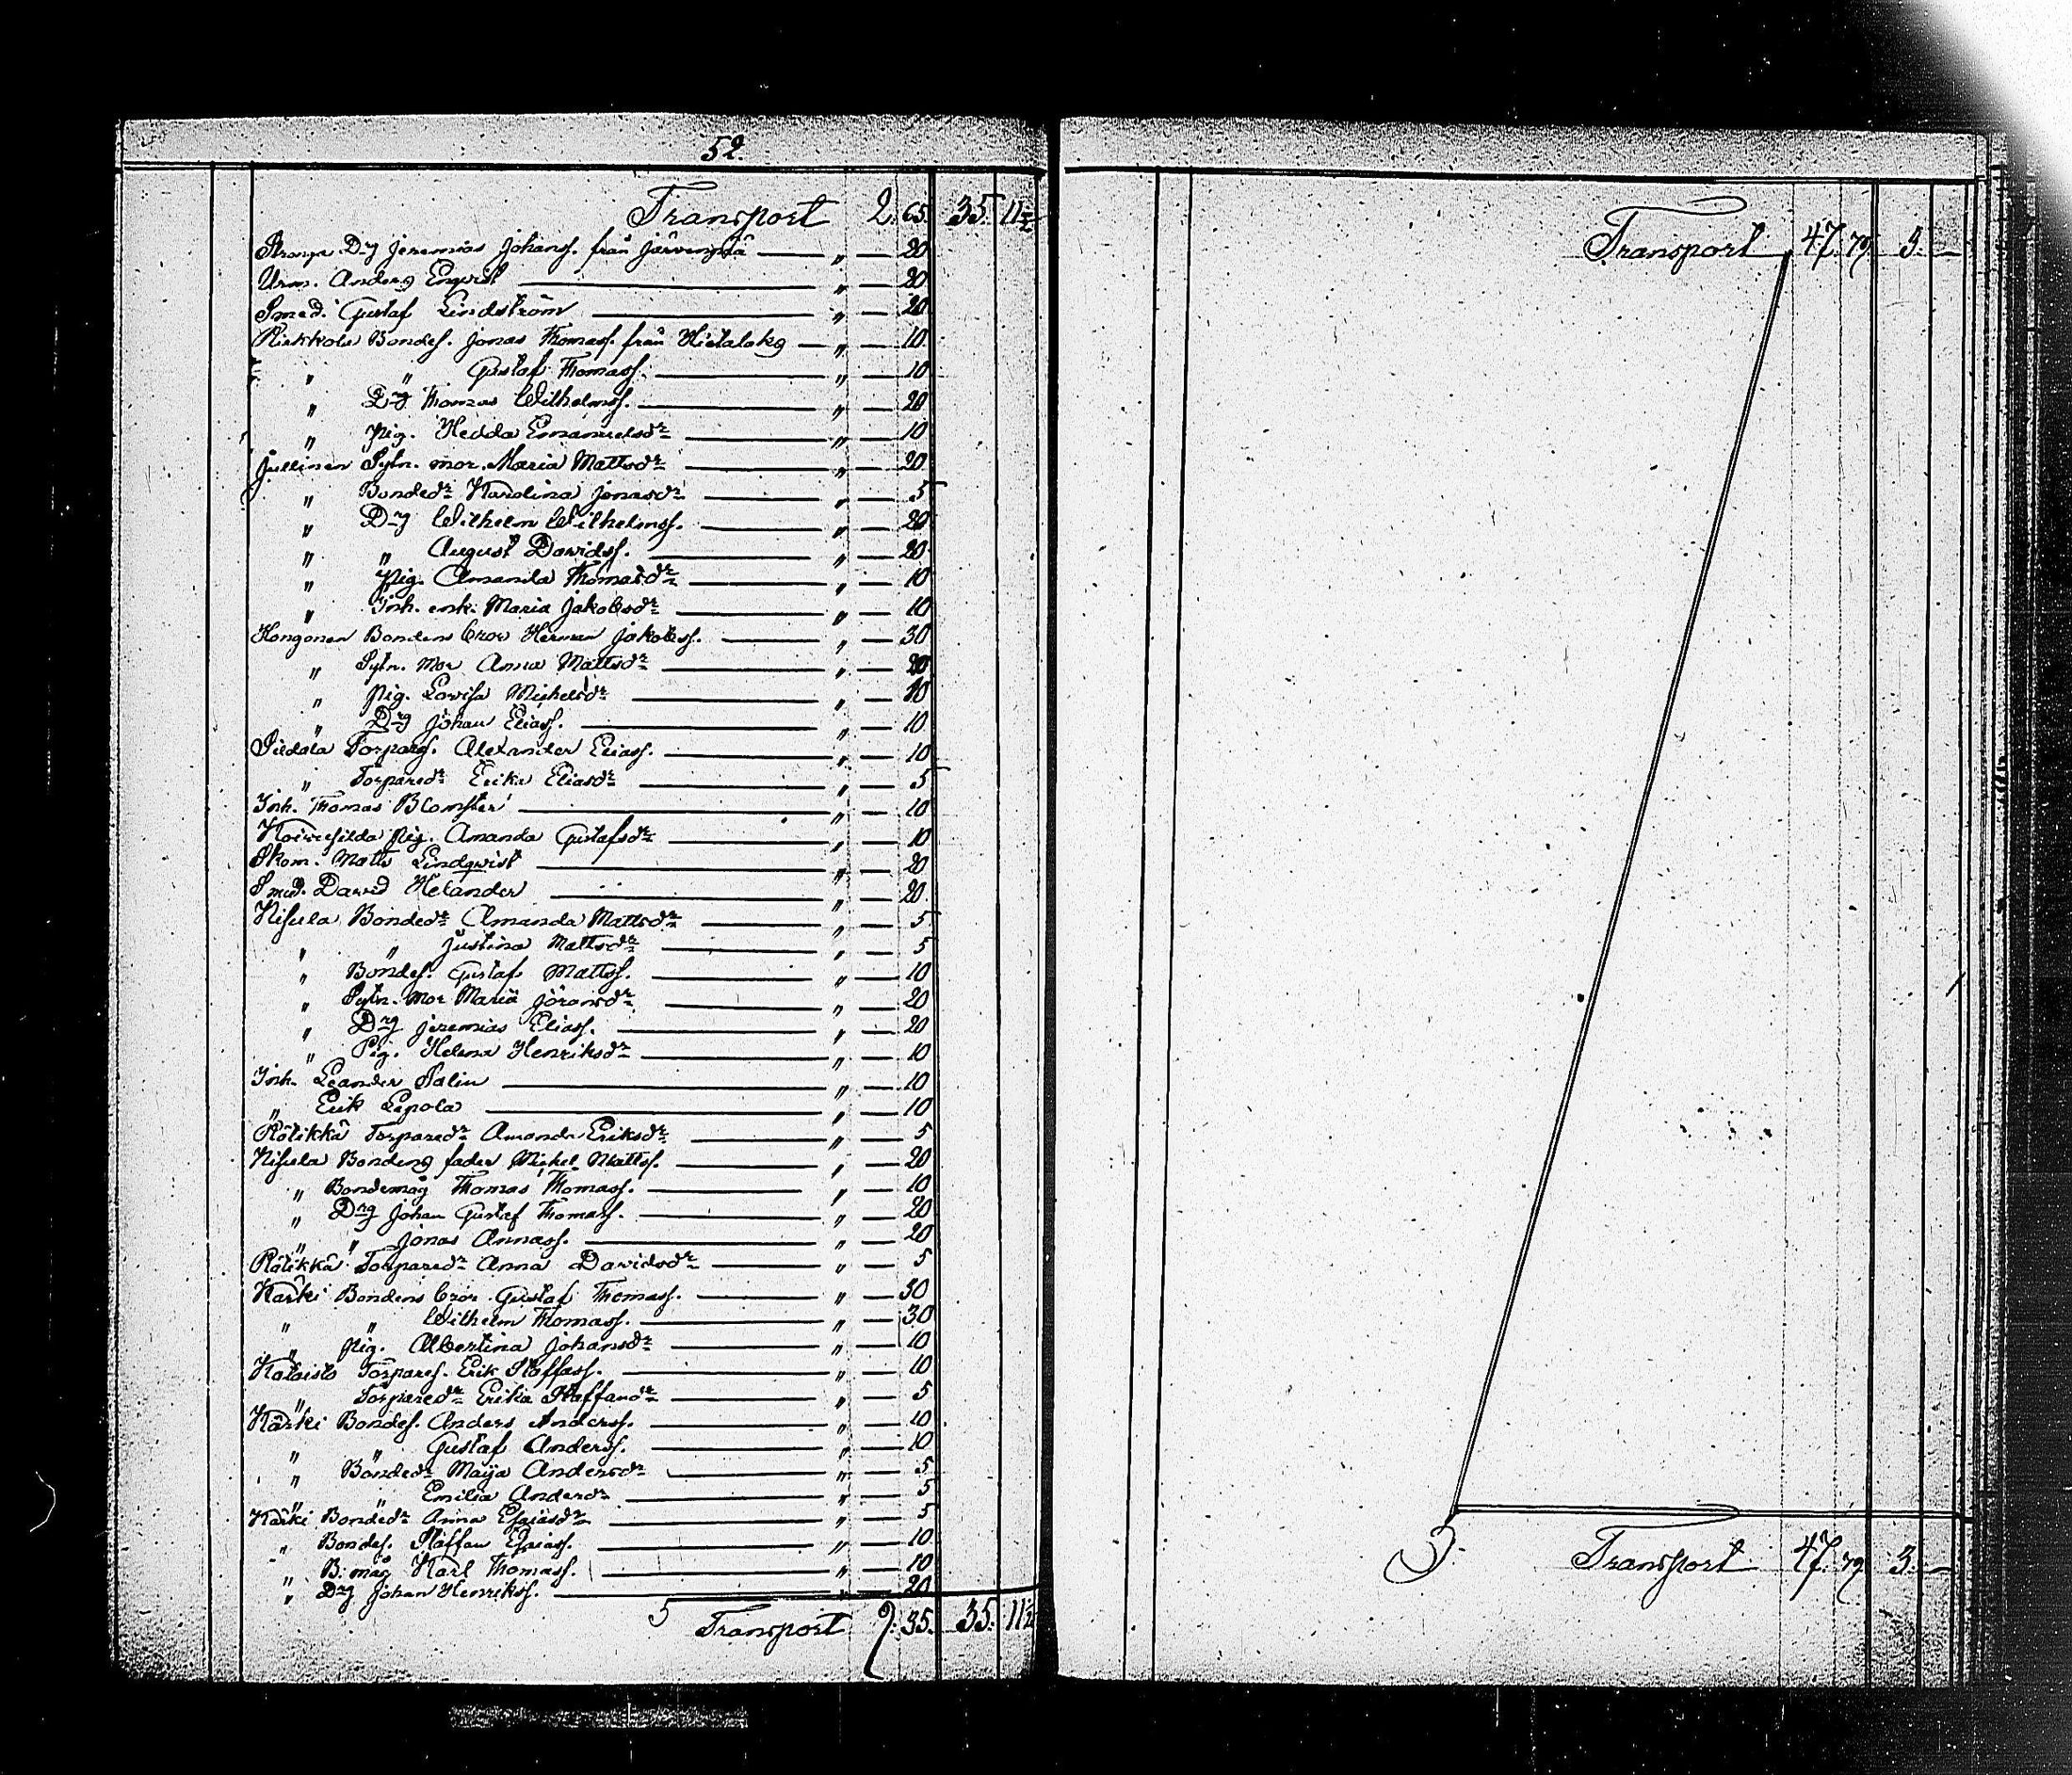 52.
Transport 2. 65. 35. 11½
Drg Jeremias Johanss. från Järvenpää — „ — 20
Urm. Anders Enqvist — „ — 20
Smed. Gustaf Lindström — „ — 20
Riekkola Bondes. Jonas Thomass. från Hietalaks — „ — 10
„ „ Gustaf Thomass. — „ — 10
„ Drg Thomas Wilhelmss. — „ — 20
„ Pig. Hedda Emanuelsdr — „ — 10
Jullinen Sytn. mor. Maria Mattsdr — „ — 20
„ Bondedr Karolina Jonasdr — „ — 5
„ Drg Wilhelm Wilhelmss. — „ — 20
„ „ August Davidss. — „ — 20
„ Pig. Amanda Thomasdr — „ — 10
„ Inh. enk. Maria Jakobsdr — „ — 10
Kongonen Bondens bror Herman Jakobss. — „ — 30
„ Sytn. Mor Anna Mattsdr — „ — 20
„ Pig. Lovisa Michelsdr — „ — 10
„ Drg Johan Eliass. — „ — 10
Torpares. Alexander Eliass. — „ — 10
„ Torparedr Erika Eliasdr — „ — 5
Inh. Thomas Blomster — „ — 10
Koivusilda Pig. Amanda Gustafsdr — „ — 10
Skom. Matts Lindqvist — „ — 20
Smed. David Helander — „ — 20
Nisula Bondedr Amanda Mattsdr — „ — 5
„ „ Justina Mattsdr — „ — 5
„ Bondes. Gustaf Mattss. — „ — 10
„ Sytn. Mor Maria Göransdr — „ — 20
„ Drg Jeremias Eliass. — „ — 20
„ Pig. Helena Henriksdr — „ — 10
Inh. Leander Salin — „ — 10
„ Erik Lepola — „ — 10
Rätikkä Torparedr Amanda Eriksdr — „ — 5
Nisula Bondens fader Michel Mattss. — „ — 20
„ Bondemåg Thomas Thomass. — „ — 10
„ Drg Johan Gustaf Thomass. — „ — 20
„ „ Jonas Annass. — „ — 20
Rätikkä Torparedr Anna Davidsdr — „ — 5
Kärki Bondens bror Gustaf Thomass. — „ — 30
„ „ Wilhelm Thomass. — „ — 30
„ Pig. Albertina Johansdr — „ — 10
Kataisto Torpares. Erik Staffass. — „ — 10
„ Torparedr Erika Staffandr — „ — 5
Kärki Bondes. Anders Anderss. — „ — 10
„ „ Gustaf Anderss. — „ — 10
„ Bondedr Maija Andersdr — „ — 5
„ „ Emilia Andersdr — „ — 5
Kärki Bondedr Anna Esaiasdr — „ — 5
„ Bondes. Staffan Esaiass. — „ — 10
„ B. måg Karl Thomass. — „ — 10
„ Drg Johan Henrikss. — „ — 20
5 Transport 9. 35. 35. 11½
Transport 47. 79. 3. —
Transport 47. 79. 3. —